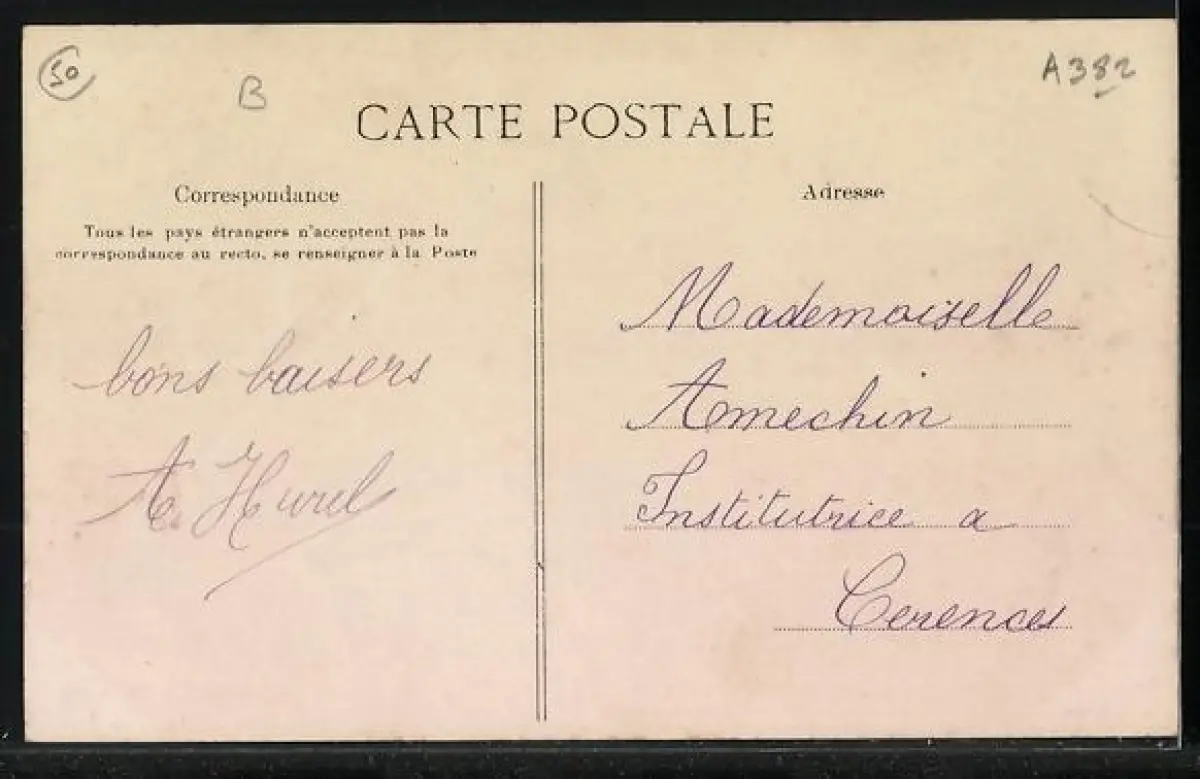 50
B
A382
CARTE POSTALE
Correspondance
Tous les pays étrangers n'acceptent pas la
correspondance au recto, se renseigner à la Poste
bons baisers
A. Hurel
Adresse
Mademoiselle
Amechin
Institutrice a
Cerences